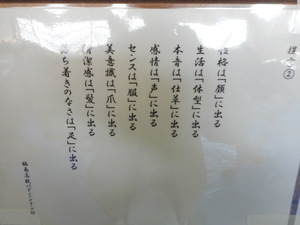 性格は「顔」に出る
生活は「体型」に出る
本音は「仕草」に出る
感情は「声」に出る
センスは「服」に出る
美意識は「爪」に出る
清潔感は「髪」に出る
落ち着きのなさは「足」に出る